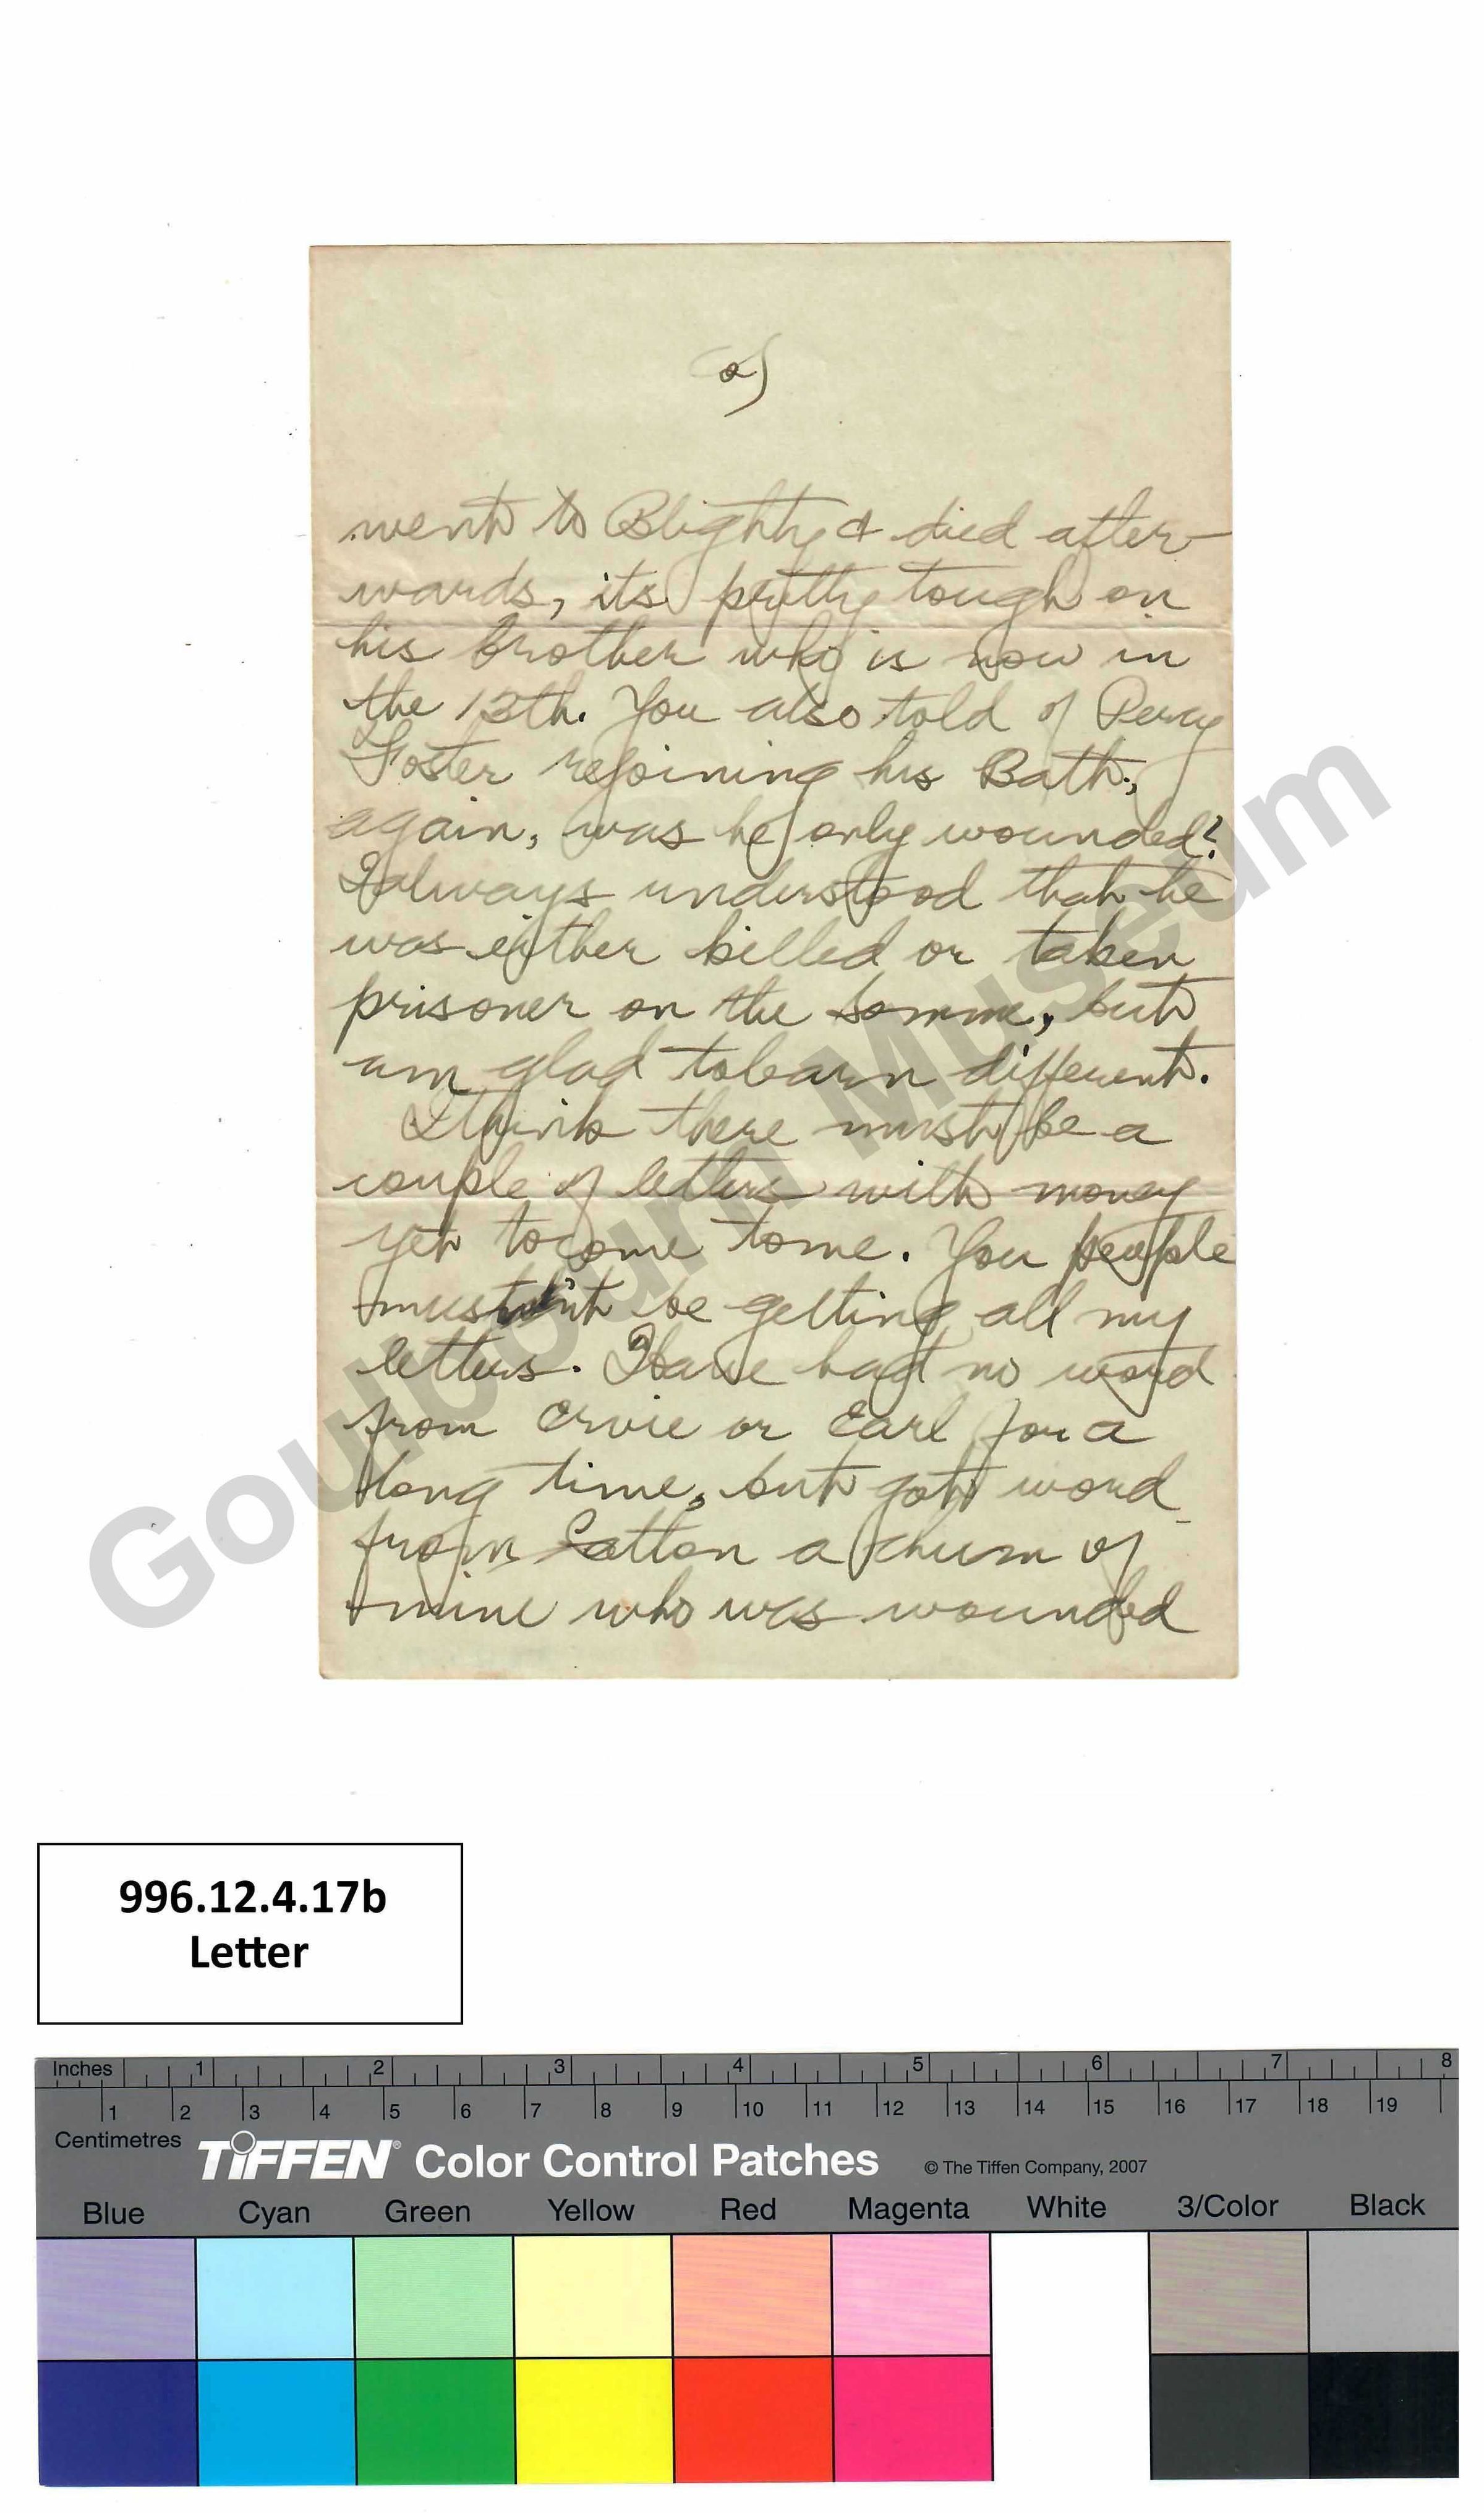 2)
went to Blighty & died after-
wards, its pretty tough on
his brother who is now in
the 13th. You also told of Percy
Foster rejoining his Batt.,
again, was he only wounded?
I always understood that he
was either killed or taken
prisoner on the Somme, but
am glad to learn different.
I think there must be a
couple of letters with money
yet to come to me. You people
mustn't be getting all my
letters. I have had no word
from Ervie or Earl for a
long time, but got word
from a chum of
mine who was wounded
Goulbourn Museum
996.12.4.17b
Letter
Inches 1 2 3 4 5 6 7 8
1 2 3 4 5 6 7 8 9 10 11 12 13 14 15 16 17 18 19
Centimetres
TIFFEN® Color Control Patches © The Tiffen Company, 2007
Blue Cyan Green Yellow Red Magenta White 3/Color Black